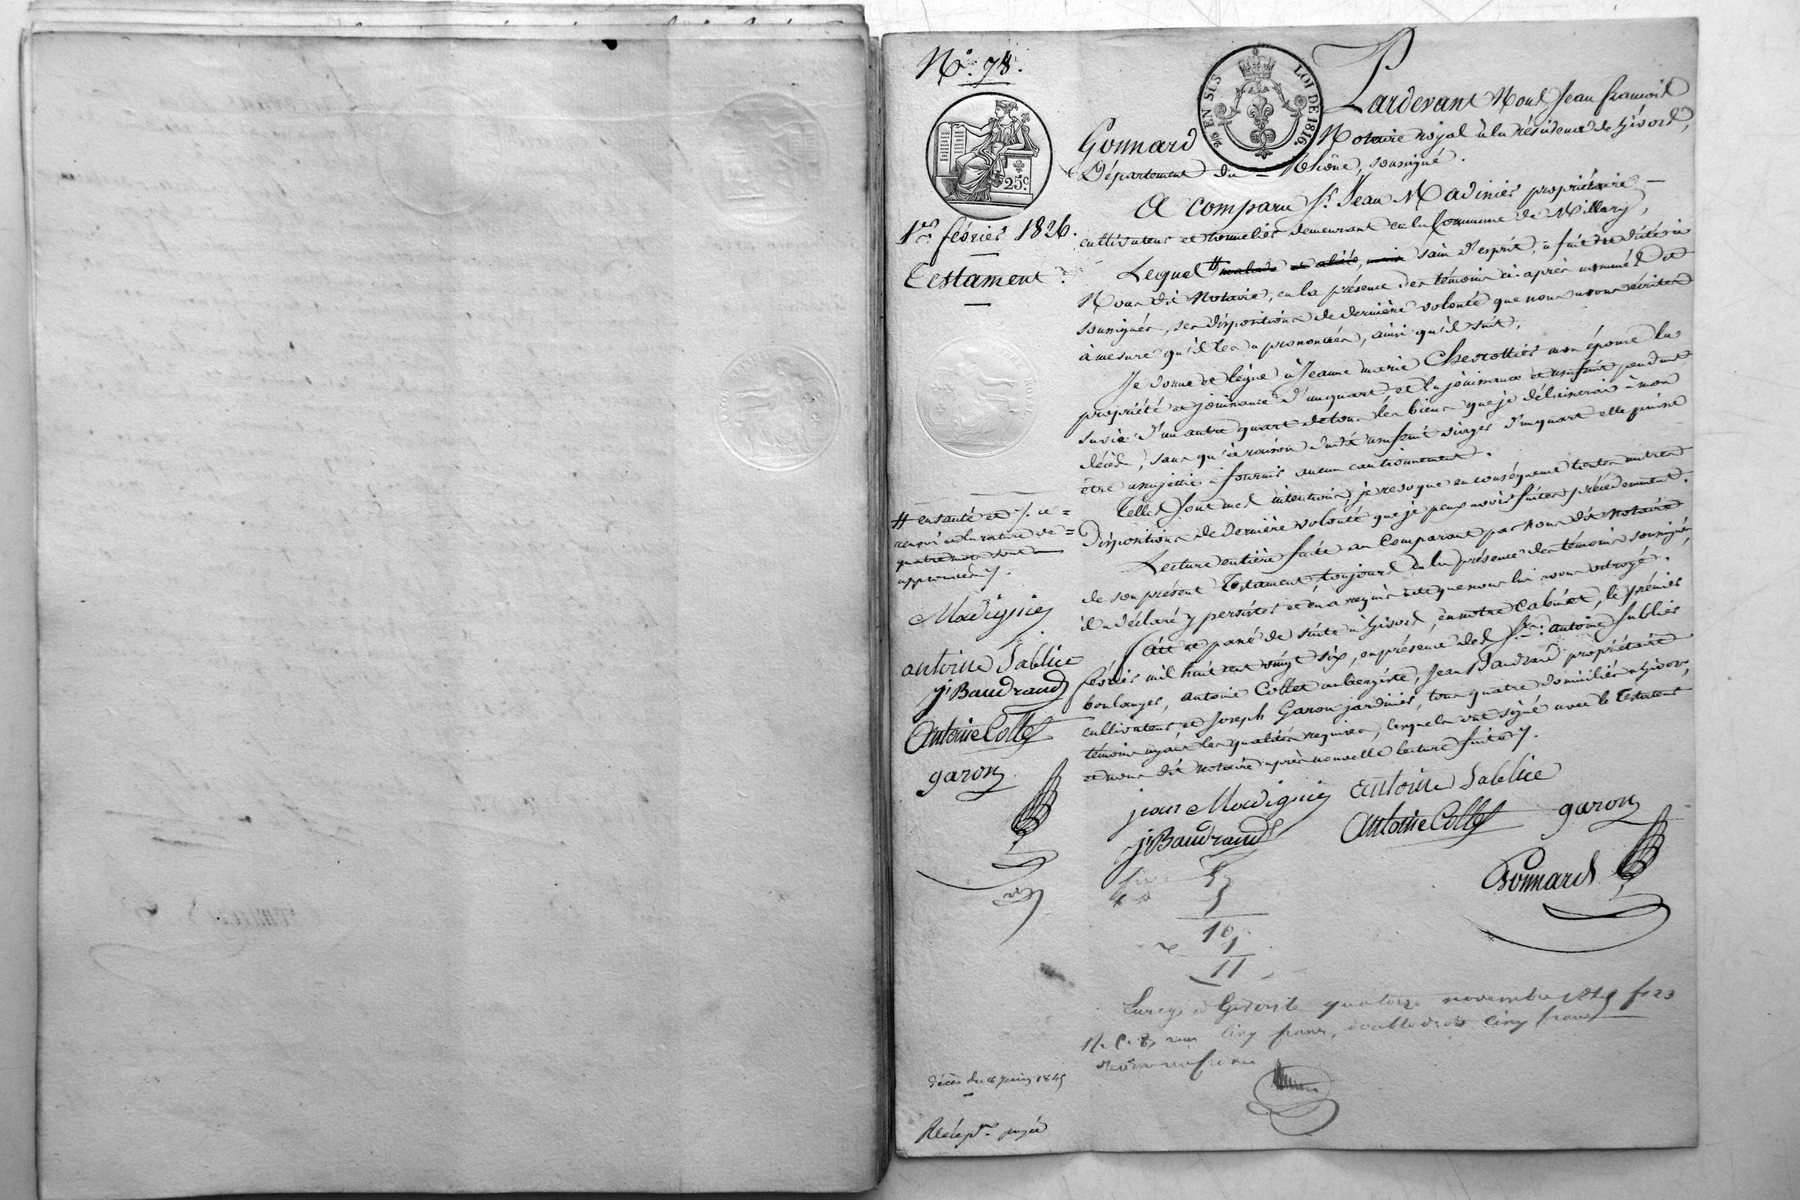 N.º 78.
25 EN SUS LOI DE 1816
25 C
1er. février 1826.
Testament.
Pardevant Nous Jean françois
Gonnard Notaire royal à la résidence de Givors,
Département du Rhône, soussigné.
A comparu Sr. Jean Madinier propriétaire
cultivateur et tonnelier demeurant en la Commune de Millery,
Lequel # malade et alité, mais sain d'esprit, a fait et dicté à
Nous dit Notaire, en la présence des témoins ci après nommés et
soussignés, ses dispositions de dernière volonté que nous avons écrites
à mesure qu'il les a prononcées, ainsi qu'il suit.
Je donne et lègue à Jeanne marie Chevrottier mon épouse la
propriété et jouissance d'un quart et la jouissance et usufruit pendant
sa vie d'un autre quart de tous les biens que je délaisserai à mon
décès, sans qu'à raison dudit usufruit d'un quart elle puisse
être assujettie à fournir aucun cautionnement.
Telles sont mes intentions, je revoque en conséquence toutes autres
dispositions de dernière volonté que je peux avoir faites précédemment.
Lecture entière faite au Comparant par nous dit notaire
de son présent Testament, toujours en la présence des témoins soussignés,
il a déclaré y persister et en a requis acte que nous lui avons octroyé.
Fait et passé de suite à Givors, en notre Cabinet, le premier
février mil huit cent vingt six, en présence des Srs. antoine Sablier
boulanger, antoine Collet aubergiste, Jean Baudrand propriétaire
cultivateur et Joseph Garon jardinier, tous quatre domiciliés à Givors,
témoins ayant les qualités requises, lesquels ont signé avec le Testateur
et nous dit notaire après nouvelle lecture faite ./.
# en santé et ./. ce
renvoi et la rature de
quatre mots sont
approuvés ./.
Madignier
antoine Sablier
J. Baudrand
Antoine Collet
garon
jean Madignier antoine Sablier
J. Baudrand Antoine Collet garon
Gonnard
5
5
10
1
11
Givors le quatorze novembre f. 23
cinq francs, double droit cinq francs
décès du 8 juin 1845